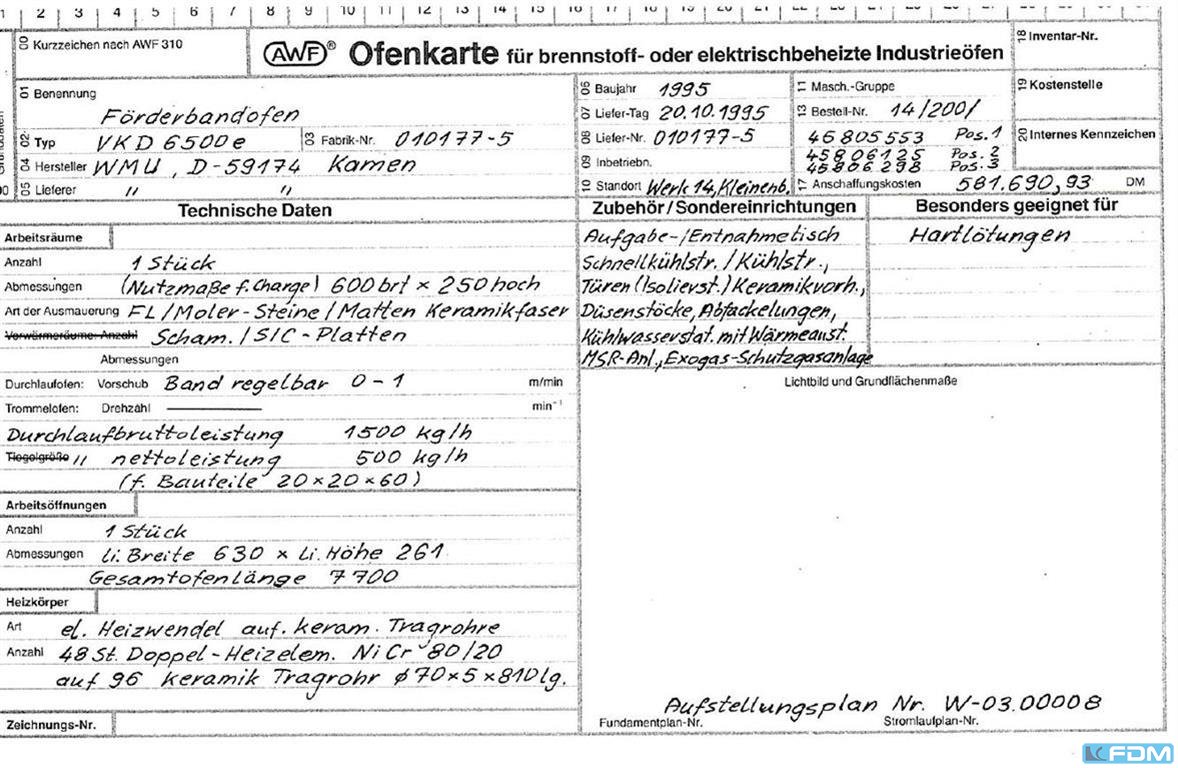 1 2 3 4 5 6 7 8 9 10 11 12 13 14 15 16 17 18
00 Kurzzeichen nach AWF 310
AWF® Ofenkarte für brennstoff- oder elektrischbeheizte Industrieöfen
18 Inventar-Nr.
01 Benennung
Förderbandofen
02 Typ VKD 6500e 03 Fabrik-Nr. 010177-5
04 Hersteller WMU, D-59174 Kamen
05 Lieferer " "
06 Baujahr 1995
07 Liefer-Tag 20.10.1995
08 Liefer-Nr. 010177-5
09 Inbetriebn.
10 Standort Werk 14, Kleinenb.
11 Masch.-Gruppe
Bestell-Nr. 14/200/
45805553 Pos.1
45806125 Pos.2
45806298 Pos.3
Anschaffungskosten 581.690,93 DM
19 Kostenstelle
20 Internes Kennzeichen
Technische Daten
Arbeitsräume
Anzahl 1 Stück
Abmessungen (Nutzmaße f. Charge) 600brt × 250hoch
Art der Ausmauerung FL/Moler-Steine/Matten Keramikfaser
Vorwärmeräume: Anzahl Scham./SIC-Platten
Abmessungen
Durchlaufofen: Vorschub Band regelbar 0-1 m/min
Trommelofen: Drehzahl ——— min⁻¹
Durchlaufbruttoleistung 1500 kg/h
Tiegelgröße " nettoleistung 500 kg/h
(f. Bauteile 20×20×60)
Arbeitsöffnungen
Anzahl 1 Stück
Abmessungen li. Breite 630 × li. Höhe 261
Gesamtofenlänge 7700
Heizkörper
Art el. Heizwendel auf. keram. Tragrohre
Anzahl 48 St. Doppel-Heizelem. NiCr 80/20
auf 96 keramik Tragrohr ϕ70×5×810lg.
Zeichnungs-Nr.
Zubehör/Sondereinrichtungen
Aufgabe-/Entnahmetisch
Schnellkühlstr./Kühlstr.,
Türen (Isolierst.) Keramikvorh.,
Düsenstöcke, Abfackelungen,
Kühlwasserstat. mit Wärmeaust.
MSR-Anl., Exogas-Schutzgasanlage
Besonders geeignet für
Hartlötungen
Lichtbild und Grundflächenmaße
Aufstellungsplan Nr. W-03.00008
Fundamentplan-Nr. Stromlaufplan-Nr.
FDM